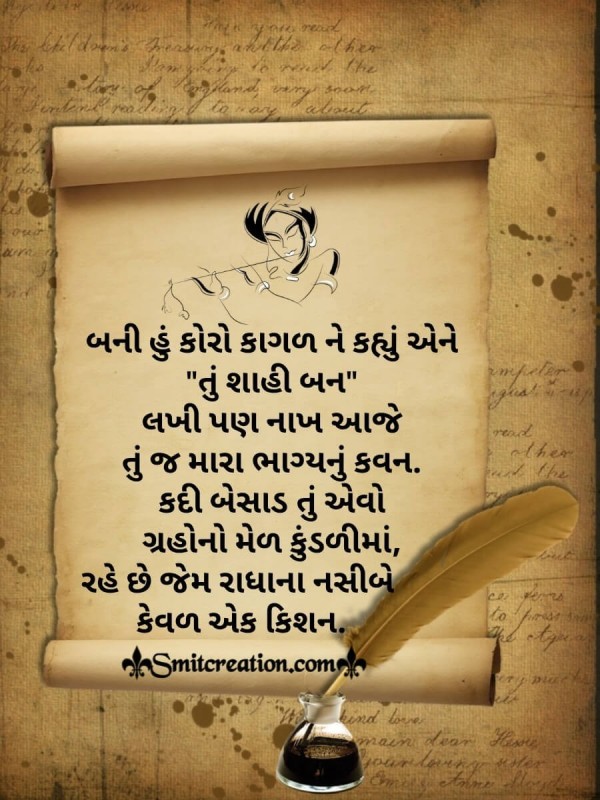 બની હું કોરો કાગળ ને કહ્યું એને
"તું શાહી બન"
લખી પણ નાખ આજે
તું જ મારા ભાગ્યનું કવન.
કદી બેસાડ તું એવો
ગ્રહોનો મેળ કુંડળીમાં,
રહે છે જેમ રાધાના નસીબે
કેવળ એક કિશન.
Smitcreation.com